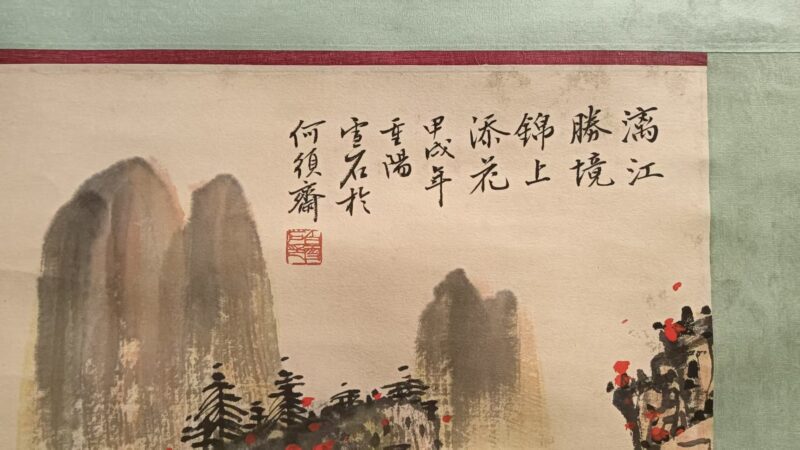 漓江
勝境
錦上
添花
甲戌年
重陽
雪石於
何須齋